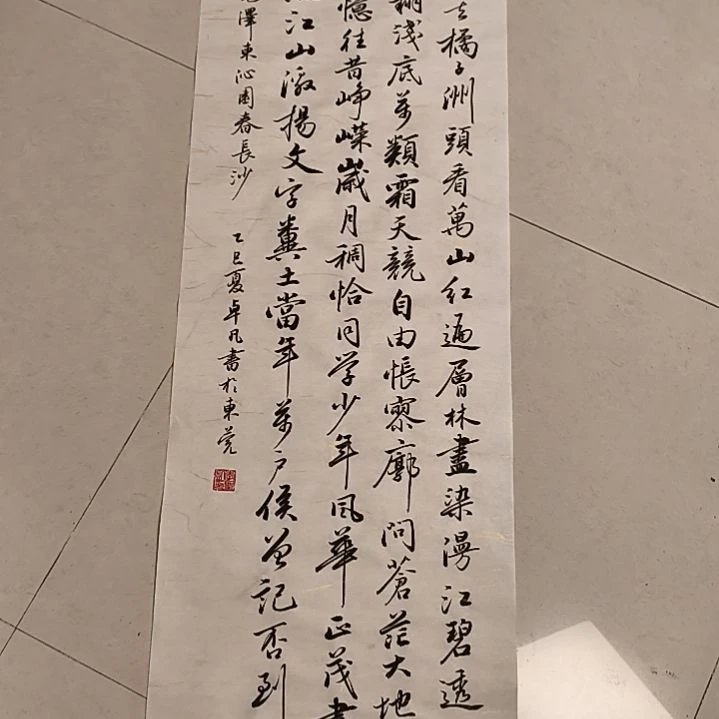 去橘子洲頭看萬山紅遍層林盡染漫江碧透
翔淺底萬類霜天競自由悵寥廓問蒼茫大地
憶往昔崢嶸歲月稠恰同学少年風華正茂書
江山激揚文字糞土當年萬户侯曾記否到
澤東沁園春長沙
乙巳夏卓凡書於東莞